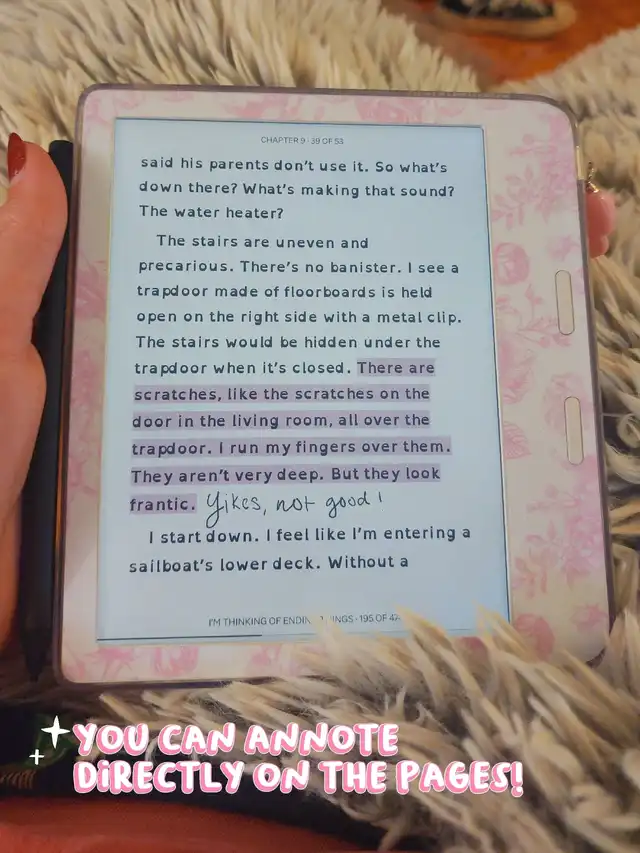 CHAPTER 9 · 39 OF 53
said his parents don't use it. So what's
down there? What's making that sound?
The water heater?
The stairs are uneven and
precarious. There's no banister. I see a
trapdoor made of floorboards is held
open on the right side with a metal clip.
The stairs would be hidden under the
trapdoor when it's closed. There are
scratches, like the scratches on the
door in the living room, all over the
trapdoor. I run my fingers over them.
They aren't very deep. But they look
frantic. Yikes, not good!
I start down. I feel like I'm entering a
sailboat's lower deck. Without a
I'M THINKING OF · 195 OF
YOU CAN ANNOTE
DIRECTLY ON THE PAGES!